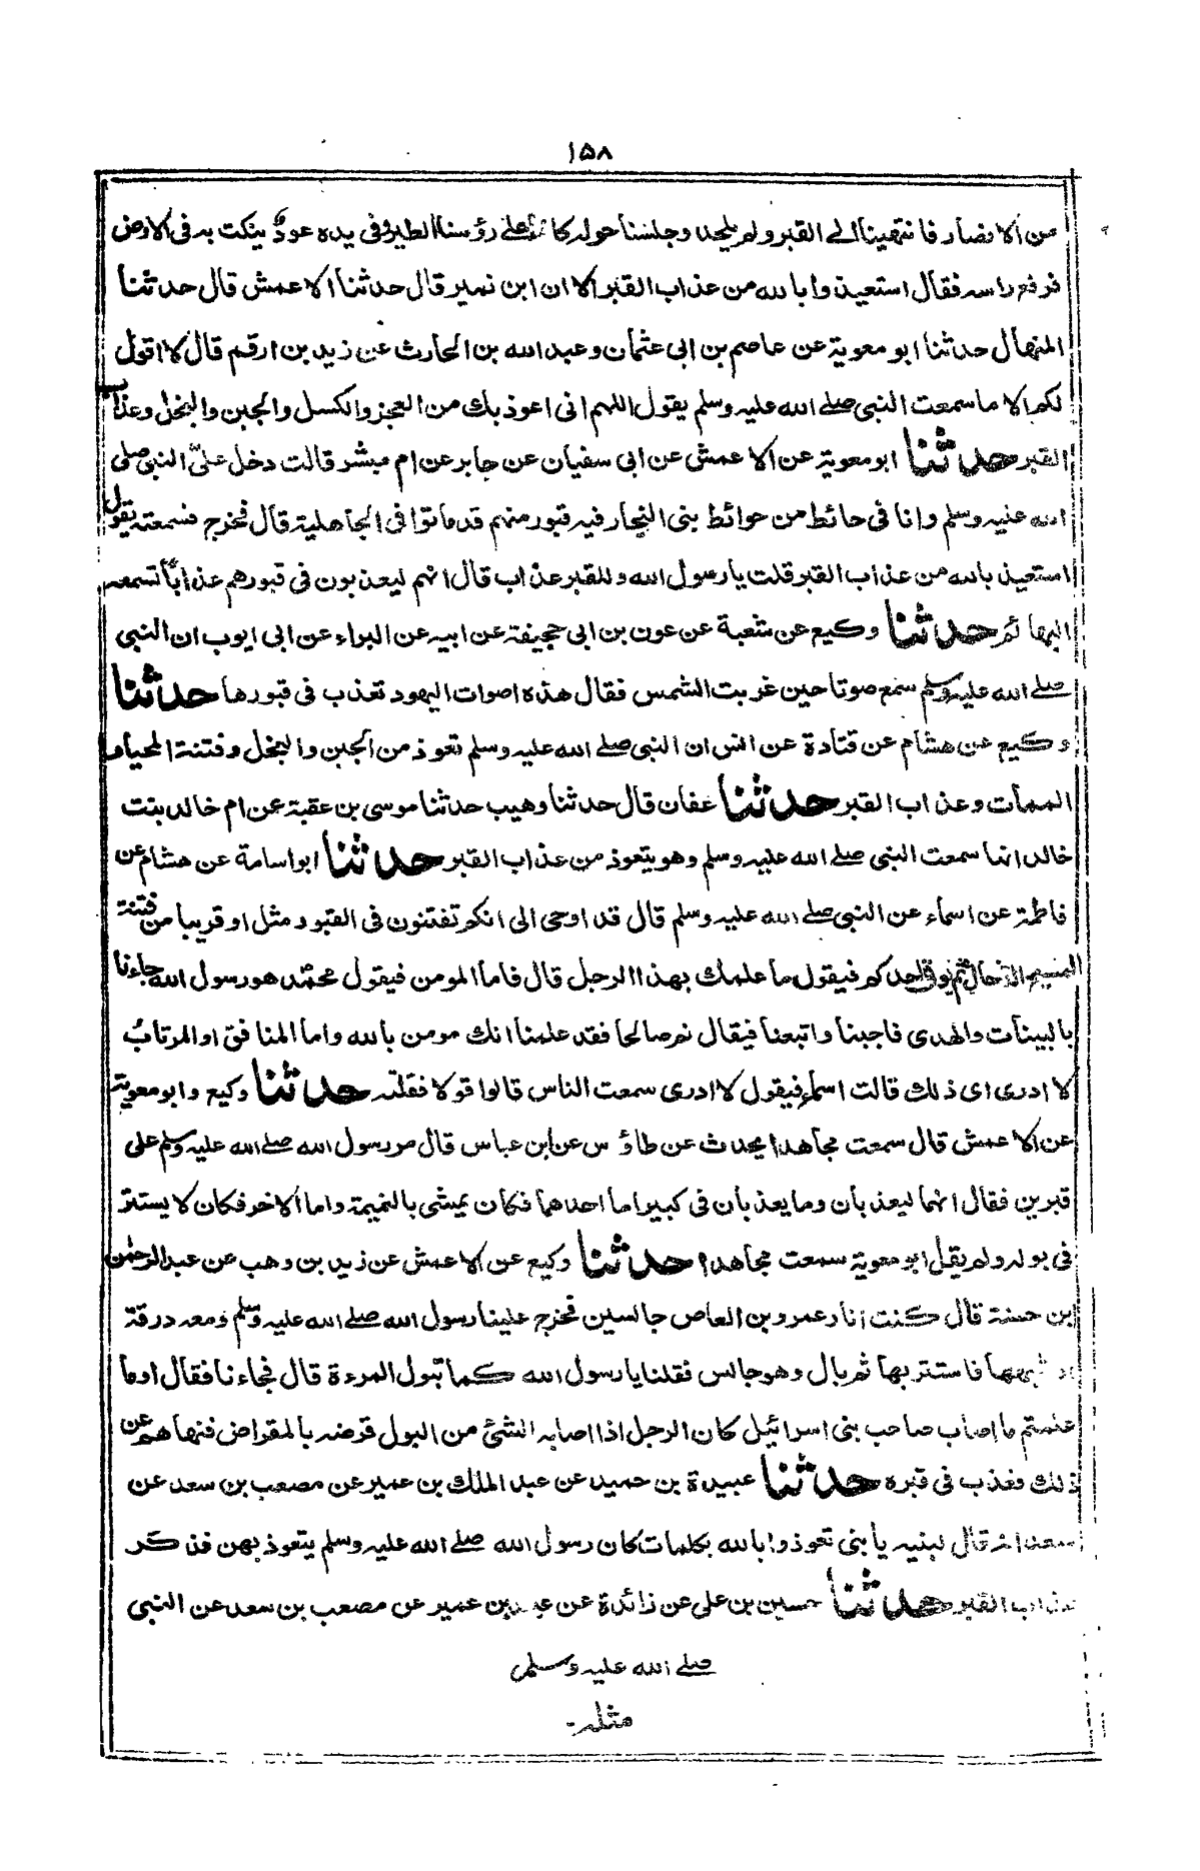 ١٥٨
من الانصار فانتهينا الى القبر ولم يلحد وجلسنا حوله كانما على رؤسنا الطير وفى يده عود ينكت به فى الارض
فرفع راسه فقال استعيذوا بالله من عذاب القبر الا ان ابن نمير قال حدثنا الاعمش قال حدثنا
المنهال حدثنا ابو معوية عن عاصم بن ابى عثمان وعبد الله بن الحارث عن زيد بن ارقم قال لا اقول
لكم الا ما سمعت النبى صلے الله عليه وسلم يقول اللهم انى اعوذ بك من العجز والكسل والجبن والبخل وعذاب
القبر حدثنا ابو معوية عن الاعمش عن ابى سفيان عن جابر عن ام مبشر قالت دخل علىّ النبى صلى
الله عليه وسلم وانا فى حائط من حوائط بنى النجار فيه قبور منهم قد ماتوا فى الجاهلية قال فخرج فسمعته يقول
استعيذ بالله من عذاب القبر قلت يا رسول الله وللقبر عذاب قال انهم ليعذبون فى قبورهم عذاباً تسمعه
البهائم حدثنا وكيع عن شعبة عن عون بن ابى جحيفة عن ابيه عن البراء عن ابى ايوب ان النبى
صلے الله عليه وسلم سمع صوتا حين غربت الشمس فقال هذه اصوات اليهود تعذب فى قبورها حدثنا
وكيع عن هشام عن قتادة عن انس ان النبى صلے الله عليه وسلم تعوذ من الجبن والبخل وفتنة المحيا و
الممات وعذاب القبر حدثنا عفان قال حدثنا وهيب حدثنا موسى بن عقبة عن ام خالد بنت
خالد انها سمعت النبى صلے الله عليه وسلم وهو يتعوذ من عذاب القبر حدثنا ابو اسامة عن هشام عن
فاطمة عن اسماء عن النبى صلے الله عليه وسلم قال قد اوحى الى انكم تفتنون فى القبور مثل او قريبا من فتنة
المسيح الدجال ثم يوتى احدكم فيقول ما علمك بهذا الرجل قال فاما المومن فيقول محمّد هو رسول الله جاءنا
بالبينات والهدى فاجبنا واتبعنا فيقال نم صالحا فقد علمنا انك مومن بالله واما المنافق او المرتاب
لا ادرى اى ذلك قالت اسماء فيقول لا ادرى سمعت الناس قالوا قولا فقلته حدثنا وكيع وابو معوية
عن الاعمش قال سمعت مجاهدا يحدث عن طاؤس عن ابن عباس قال مر رسول الله صلے الله عليه وسلم على
قبرين فقال انهما ليعذبان وما يعذبان فى كبير اما احدهما فكان يمشى بالنميمة واما الاخر فكان لا يستتر
فى بوله ولم يقل ابو معوية سمعت مجاهدا حدثنا وكيع عن الاعمش عن زيد بن وهب عن عبد الرحمٰن
ابن حسنة قال كنت انا وعمرو بن العاص جالسين فخرج علينا رسول الله صلے الله عليه وسلم ومعه درقة
او شبهها فاستتر بها ثم بال وهو جالس فقلنا يا رسول الله كما تبول المرءة قال فجاءنا فقال اوما
علمتم ما اصاب صاحب بنى اسرائيل كان الرجل اذا اصابه الشئ من البول قرضه بالمقراض فنهاهم عن
ذلك فعذب فى قبره حدثنا عبيدة بن حميد عن عبد الملك بن عمير عن مصعب بن سعد عن
سعد انه قال لبنيه يا بنى تعوذوا بالله بكلمات كان رسول الله صلے الله عليه وسلم يتعوذ بهن فذكر
عذاب القبر حدثنا حسين بن على عن زائدة عن عبد بن عمير عن مصعب بن سعد عن النبى
صلے الله عليه وسلم
مثله۔